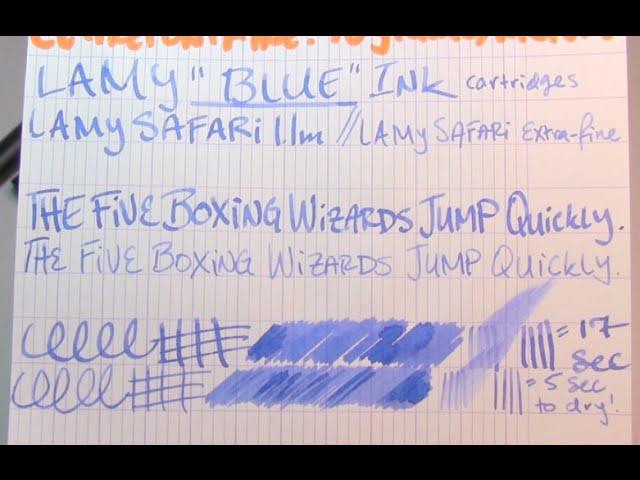 LAMY "BLUE" INK cartridges
LAMY SAFARi 1.1m // LAMY SAFARi Extra-fine
THE FiVE BOXiNG WiZARDS JUMP QuicKLy.
THE FiVE BOXiNG WiZARDS JUMP QuicKLy.
= 17 sec
= 5 sec to dry!